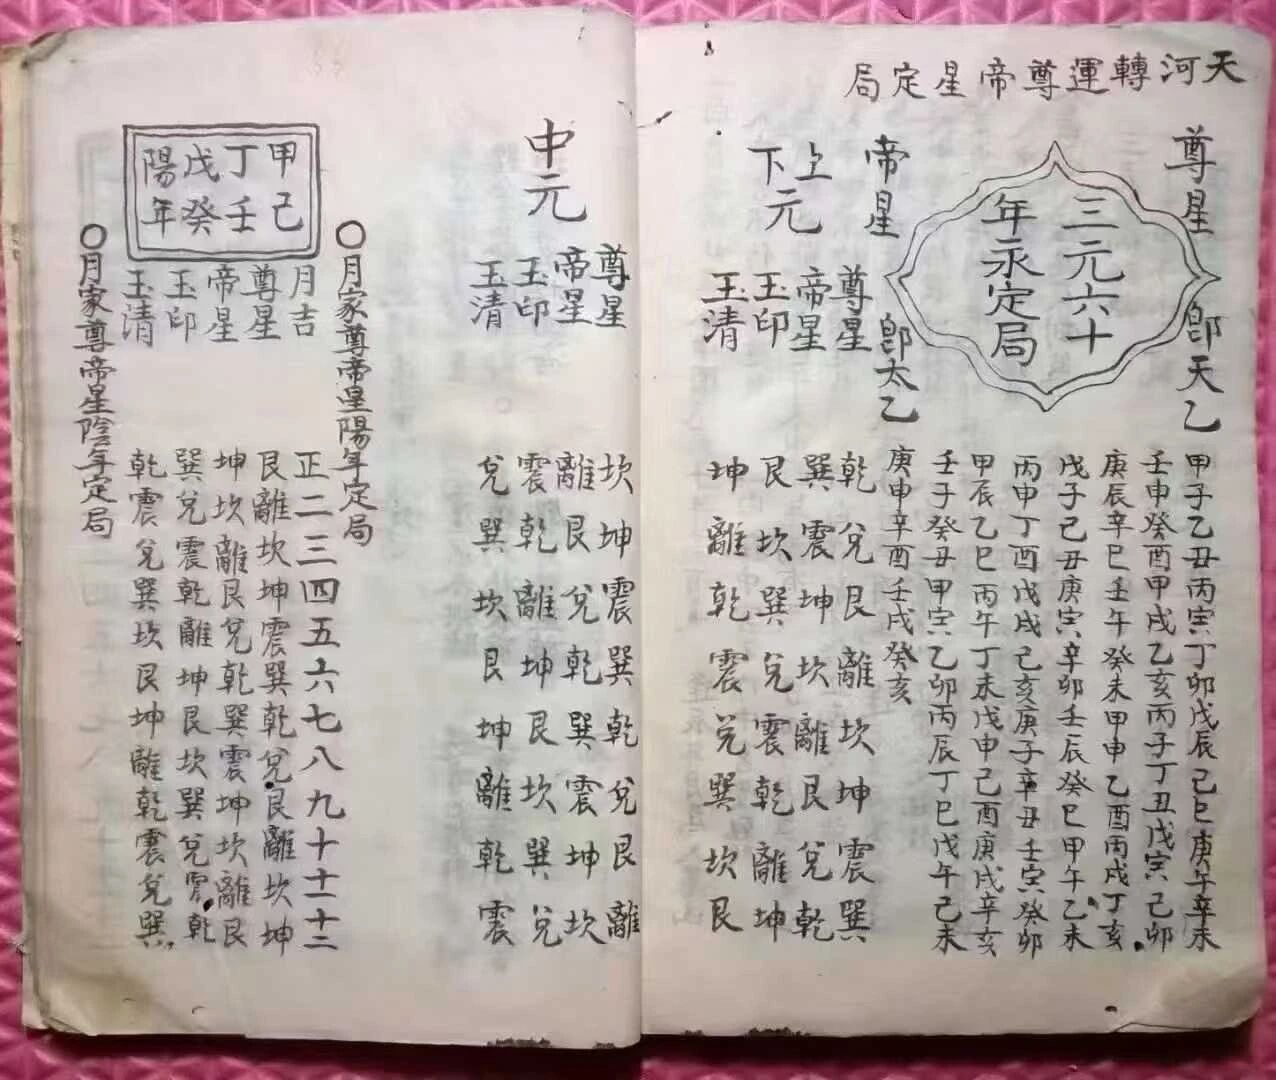 天河轉運尊帝星定局
尊星卽天乙
三元六十
年永定局
帝星卽太乙
甲子乙丑丙寅丁卯戊辰己巳庚午辛未
壬申癸酉甲戌乙亥丙子丁丑戊寅己卯
庚辰辛巳壬午癸未甲申乙酉丙戌丁亥
戊子己丑庚寅辛卯壬辰癸巳甲午乙未
丙申丁酉戊戌己亥庚子辛丑壬寅癸卯
甲辰乙巳丙午丁未戊申己酉庚戌辛亥
壬子癸丑甲寅乙卯丙辰丁巳戊午己未
庚申辛酉壬戌癸亥
上下元
尊星 乾兌艮離坎坤震巽
帝星 巽震坤坎離艮兌乾
玉印 艮坎巽兌震乾離坤
玉清 坤離乾震兌巽坎艮
中元
尊星 坎坤震巽乾兌艮離
帝星 離艮兌乾巽震坤坎
玉印 震乾離坤艮坎巽兌
玉清 兌巽坎艮坤離乾震
〇月家尊帝星陽年定局
甲己
丁壬
戊癸
陽年
月吉 正二三四五六七八九十十一十二
尊星 艮離坎坤震巽乾兌艮離坎坤
帝星 坤坎離艮兌乾巽震坤坎離艮
玉印 巽兌震乾離坤艮坎巽兌震乾
玉清 乾震兌巽坎艮坤離乾震兌巽
〇月家尊帝星陰年定局